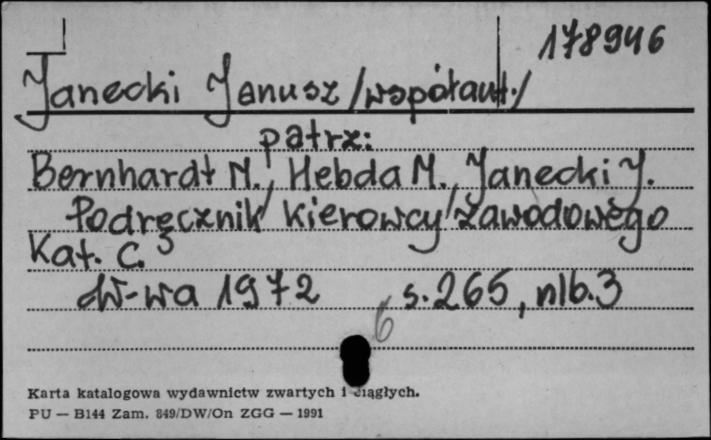 178946
Janecki Janusz /współaut./
patrz:
Bernhardt M., Hebda M., Janecki J.
Podręcznik kierowcy zawodowego
Kat. C.
W-wa 1972 s. 265, nlb. 3
6
Karta katalogowa wydawnictw zwartych i ciągłych.
PU — B144 Zam. 849/DW/On ZGG — 1991